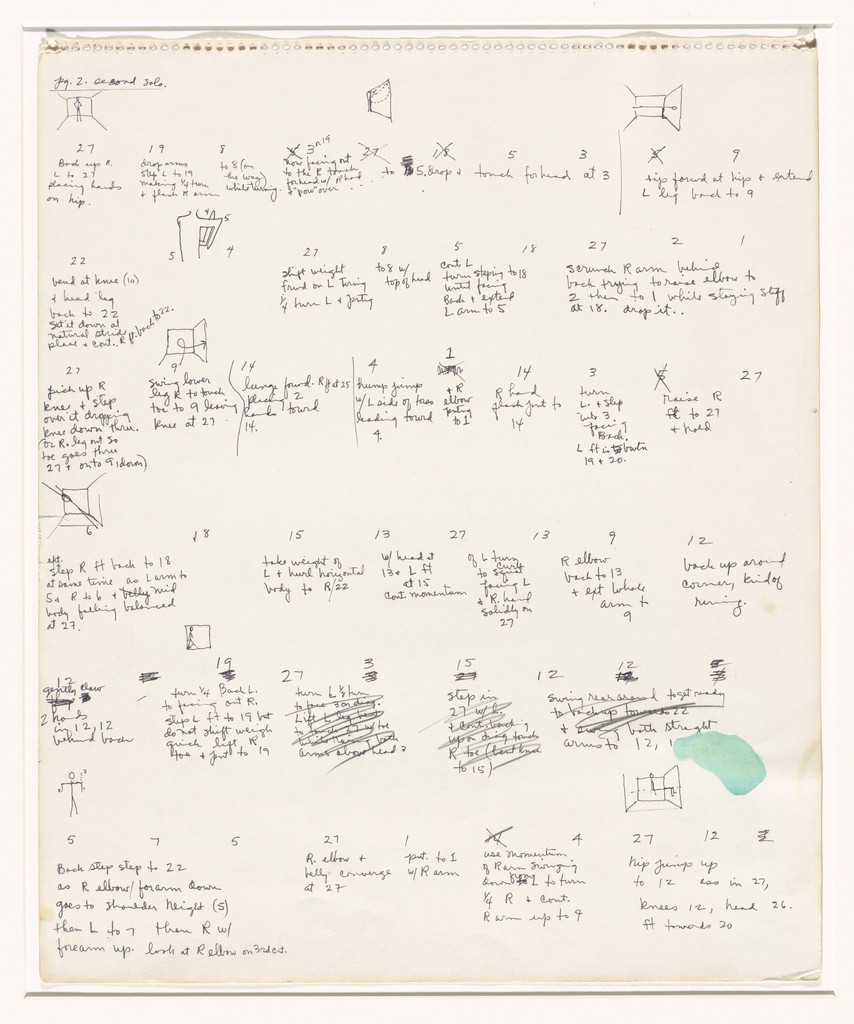 pg. 2. second solo.
27 19 8 3 27 18 5 3 5 9
Back up R.
L to 27
placing hands
on hip.
drop arms
step L to 19
making 1/4 turn
+ flash R arm
to 8 (on
the way)
while turning.
now facing out
to the R touch
forhead w/ R hand
"pow" over
to 5. drop + touch forhead at 3
tip forwd at hip + extend
L leg back to 9
4 5
5 4
22 27 8 5 18 27 2 1
bend at knee (10)
+ head leg
back to 22
set it down at
natural stride
place + cont. R ft. back to 22.
shift weight
frwd on L turing
1/4 turn L +
to 8 w/
top of head
cont L
turn steping to 18
until facing
Back + extend
L arm to 5
scrunch R arm behind
back trying to raise elbow to
2 then to 1 while staying stiff
at 18. drop it..
27 9 14 4 1 14 3 27
pick up R
knee + step
over it dropping
knee down thru.
(or R. leg out so
toe goes thru
27 + onto 9, down)
swing lower
leg R to touch
toe to 9 leaving
knee at 27
lunge forwd. R ft at 25
placing 2
hands towrd
14.
hump jump
w/ L side of torso
leading towrd
4.
+ R
elbow
to 1
R hand
flash to
14
turn
L. + step
into 3.
facing
Back.
L ft in btwn
19 + 20.
raise R
ft to 27
+ hold
6
18 15 13 27 13 9 12
ext.
step R ft back to 18
at same time as L arm to
5 + R to 6 + mid
body balanced
at 27.
take weight of
L + hurl horizontal
body to R/22
w/ head at
13 + L ft
at 15
cont. momentum
of L turn
to squat
facing L
+ R. hand
solidly on
27
R elbow
back to 13
+ ext whole
arm to
9
back up around
corner, kind of
running.
12 19 27 3 15 12 12
gently claw
2 hands
in 12, 12
behind back
turn 1/4 Back L.
to facing out R.
step L ft to 19 but
do not shift weigh
quick lift R
toe + to 19
turn L 1/4 turn
arms above head ?
step in
27 w/ L.
+ cont. back
R toe
to 15)
swing rear around to get ready
to back up towards 22
+ both straight
arms to 12, 1
5 7 5 27 1 4 27 12
Back step step to 22
as R elbow/forarm down
goes to shoulder height (5)
then L to 7 then R w/
forearm up. look at R elbow on 3rd ct.
R. elbow +
belly converge
at 27
to 1
w/ R arm
use momentum
of R arm swinging
down L to turn
1/4 R + cont.
R arm up to 9
hip jump up
to 12 ass in 27,
knees 12, head 26.
ft towards 20